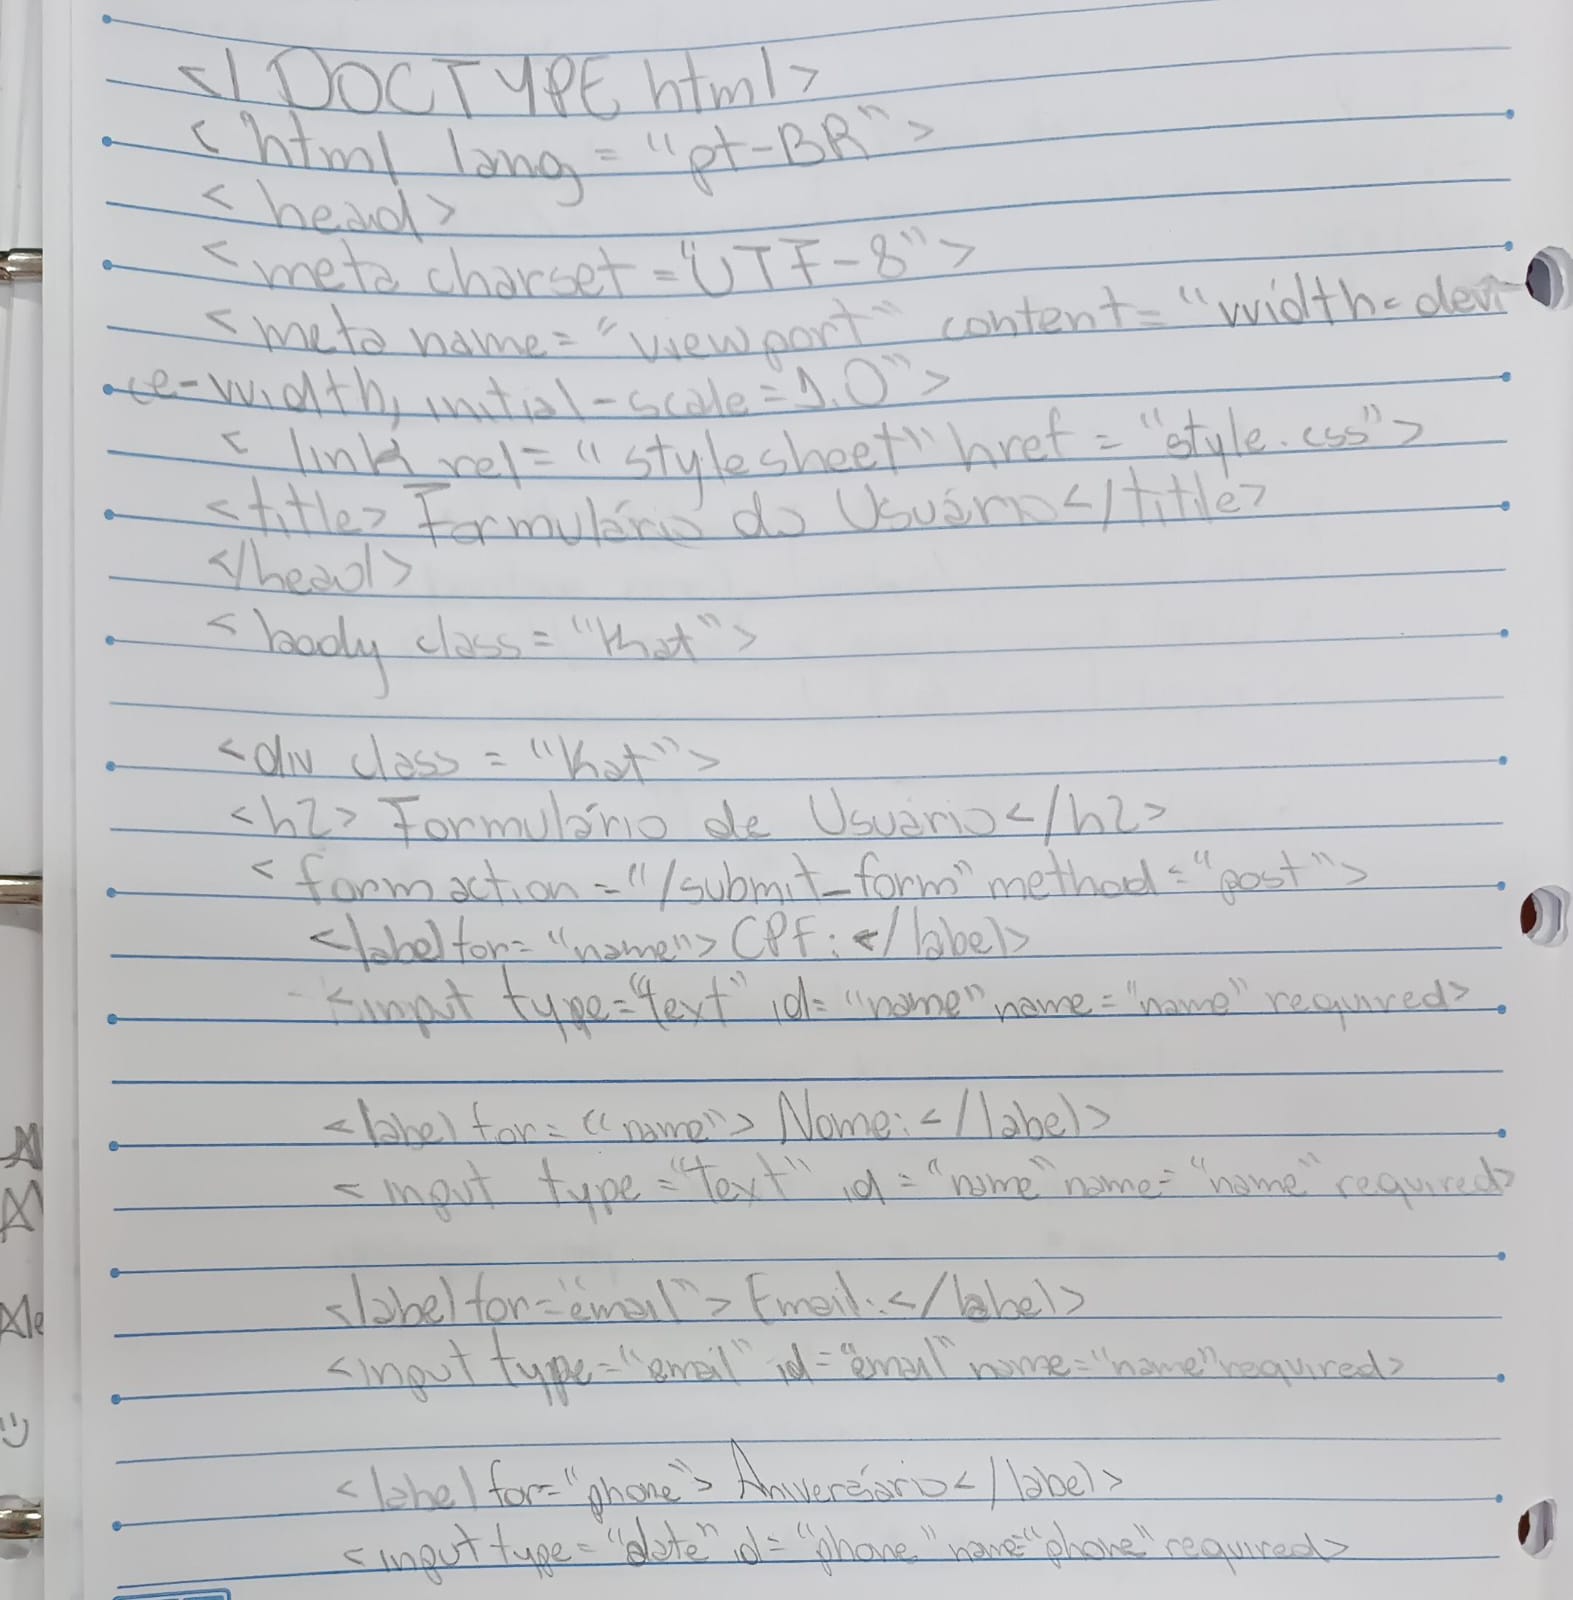 <! DOCTYPE html>
<html lang = "pt-BR">
<head>
<meta charset = "UTF-8">
<meta name = "viewport" content = "width=devi
ce-width, initial-scale=1.0">
<link rel = "stylesheet" href = "style.css">
<title> Formulário do Usuário</title>
</head>
<body class = "Kat">
<div class = "Kat">
<h2> Formulário de Usuário</h2>
<form action = "/submit_form" method = "post">
<label for = "name"> CPF: </label>
<input type = "text" id = "name" name = "name" required>
<label for = "name"> Nome: </label>
<input type = "text" id = "name" name = "name" required>
<label for = "email"> Email: </label>
<input type = "email" id = "email" name = "name" required>
<label for = "phone"> Aniversário </label>
<input type = "date" id = "phone" name = "phone" required>